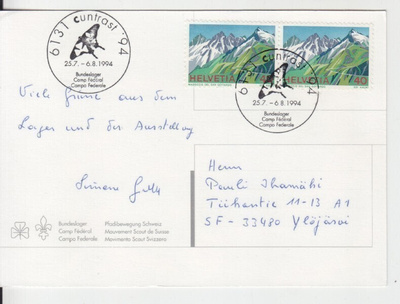 6131 cuntrast '94
25.7. – 6.8.1994
Bundeslager
Camp Fédéral
Campo Federale
HELVETIA
HELVETIA 40
6131 cuntrast '94
25.7. – 6.8.1994
Bundeslager
Camp Fédéral
Campo Federale
Viele Grüsse aus dem
Lager und der Ausstellung
Herrn
Pauli Ihamäki
11-13 A1
SF - 33480 Ylöjärvi
Bundeslager
Camp Fédéral
Campo Federale
Pfadibewegung Schweiz
Mouvement Scout de Suisse
Movimento Scout Svizzero